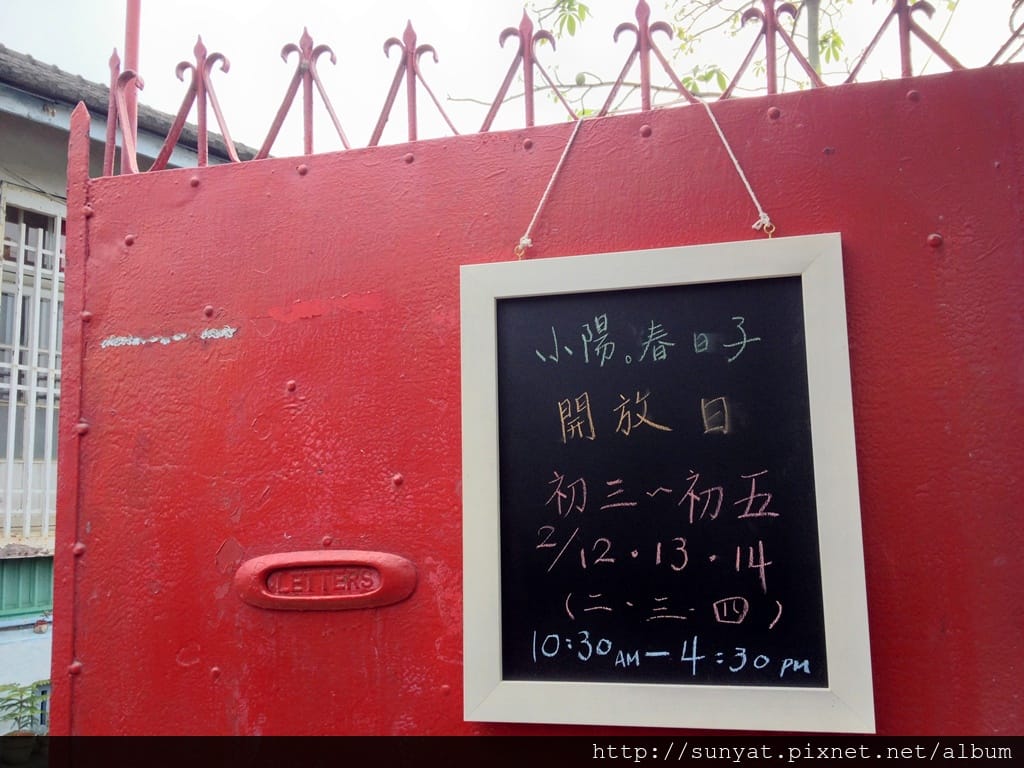 小陽。春日子
開放日
初三~初五
2/12・13・14
(二・三・四)
10:30AM—4:30PM
LETTERS
http://sunyat.pixnet.net/album